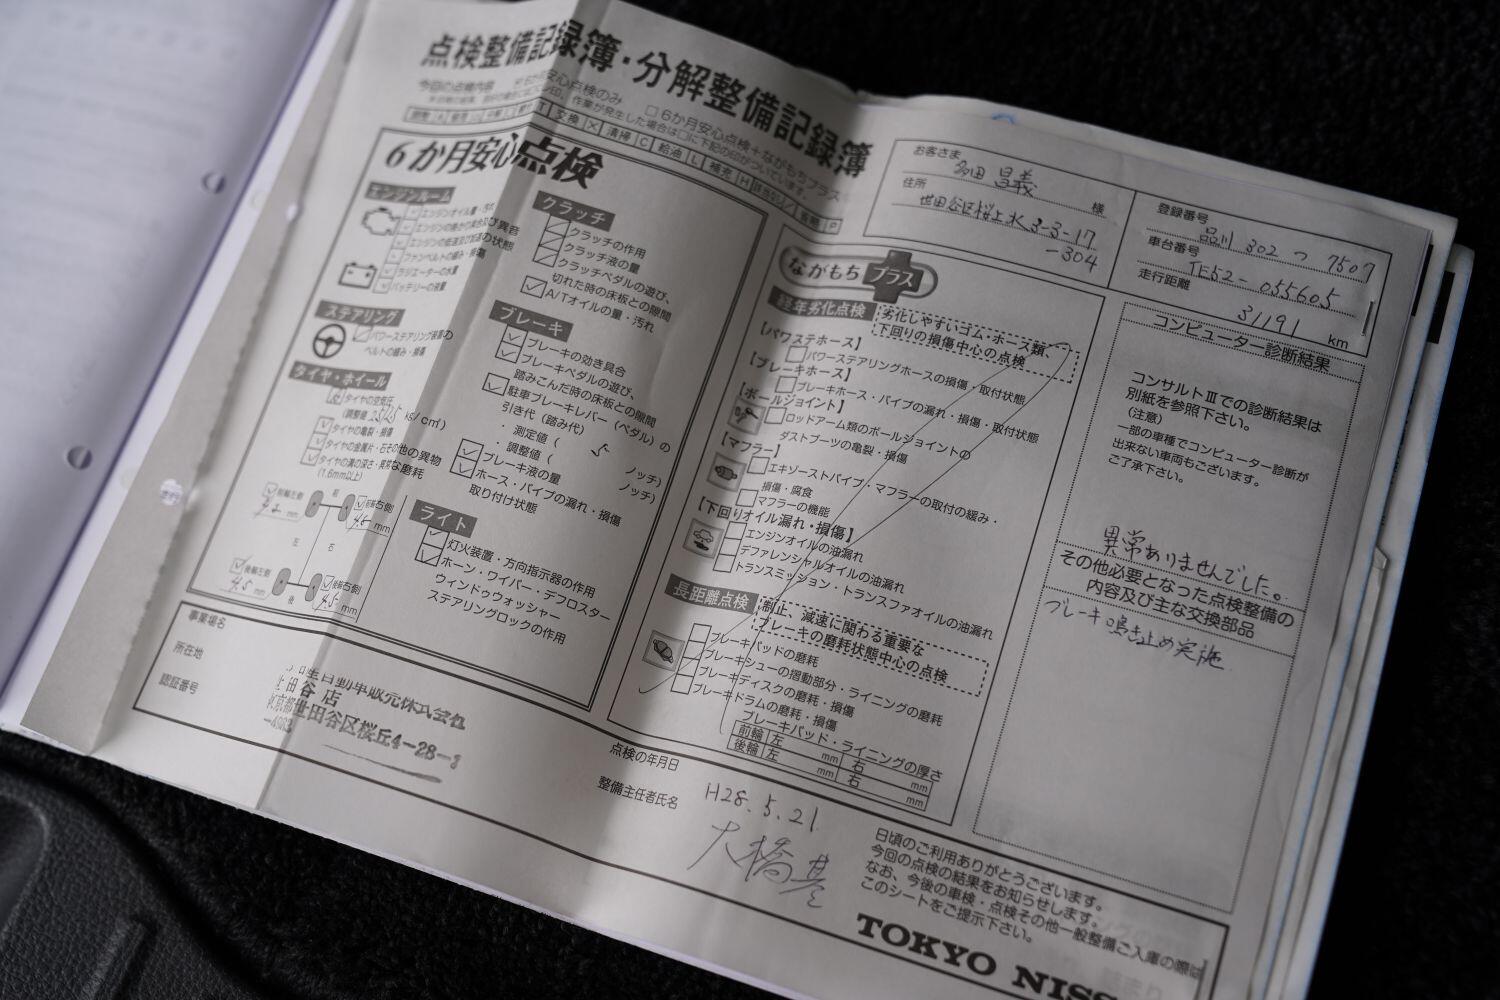 点検整備記録簿・分解整備記録簿
今回の点検内容 6か月安心点検のみ □6か月安心点検+ながもちプラス
作業が発生した場合は□に下記の印がついています。
交換 × 清掃 C 給油 L 補充 H 省略 P
お客さま
多田 昌義 様
住所
世田谷区桜上水3-3-17
-304
登録番号
品川 302 つ 7507
車台番号
TE52-055605
走行距離
31191 km
6か月安心点検
エンジンルーム
エンジンオイル量・汚れ
エンジンの掛かり具合及び異音
エンジンの低速及び加速の状態
ファンベルトの緩み・損傷
ラジエーターの水量
バッテリーの液量
ステアリング
パワーステアリング装置の
ベルトの緩み・損傷
タイヤ・ホイール
タイヤの空気圧
(調整値 kg/c㎡)
タイヤの亀裂・損傷
タイヤの金属片・石その他の異物
タイヤの溝の深さ・異常な磨耗
(1.6mm以上)
前輪左側 前 前輪右側
mm 4.5 mm
左 右
後輪左側 後輪右側
4.5 mm 後 4.5 mm
クラッチ
クラッチの作用
クラッチ液の量
クラッチペダルの遊び、
切れた時の床板との隙間
A/Tオイルの量・汚れ
ブレーキ
ブレーキの効き具合
ブレーキペダルの遊び、
踏みこんだ時の床板との隙間
駐車ブレーキレバー(ペダル)の
引き代(踏み代)
・測定値( 5 ノッチ)
・調整値( ノッチ)
ブレーキ液の量
ホース・パイプの漏れ・損傷
取り付け状態
ライト
灯火装置・方向指示器の作用
ホーン・ワイパー・デフロスター
ウィンドゥウォッシャー
ステアリングロックの作用
ながもちプラス
経年劣化点検
劣化しやすいゴム・ホース類、
下回りの損傷中心の点検
【パワステホース】
パワーステアリングホースの損傷・取付状態
【ブレーキホース】
ブレーキホース・パイプの漏れ・損傷・取付状態
【ボールジョイント】
ロッドアーム類のボールジョイントの
ダストブーツの亀裂・損傷
【マフラー】
エキゾーストパイプ・マフラーの取付の緩み・
損傷・腐食
マフラーの機能
【下回りオイル漏れ・損傷】
エンジンオイルの油漏れ
デファレンシャルオイルの油漏れ
トランスミッション・トランスファオイルの油漏れ
長距離点検
制止、減速に関わる重要な
ブレーキの磨耗状態中心の点検
ブレーキパッドの磨耗
ブレーキシューの摺動部分・ライニングの磨耗
ブレーキディスクの磨耗・損傷
ブレーキドラムの磨耗・損傷
ブレーキパッド・ライニングの厚さ
前輪 左 mm 右 mm
後輪 左 mm 右 mm
コンピューター診断結果
コンサルトⅢでの診断結果は
別紙を参照下さい。
(注意)
一部の車種でコンピューター診断が
出来ない車両もございます。
ご了承下さい。
異常ありませんでした。
その他必要となった点検整備の
内容及び主な交換部品
ブレーキ鳴き止め実施
事業場名
所在地
認証番号
産自動車販売株式会社
田谷店
京都世田谷区桜丘4-28-
点検の年月日
H28.5.21
整備主任者氏名
大橋
日頃のご利用ありがとうございます。
今回の点検の結果をお知らせします。
なお、今後の車検・点検その他一般整備ご入庫の際は
このシートをご提示下さい。
TOKYO NISS